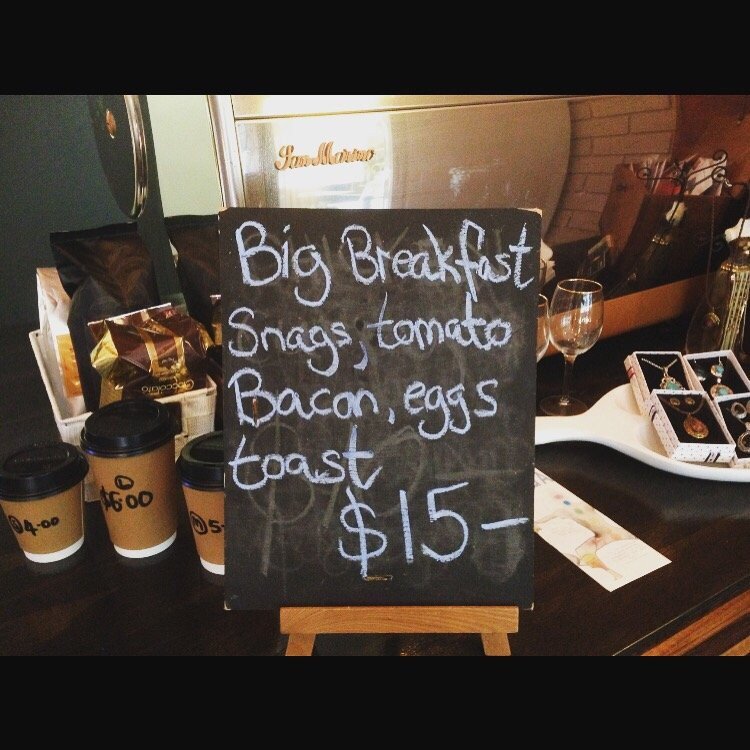 San Marino
Big Breakfast
Snags, tomato
Bacon, eggs
toast
$15-
4-00
L
$6.00
M 5-
Cioccolato